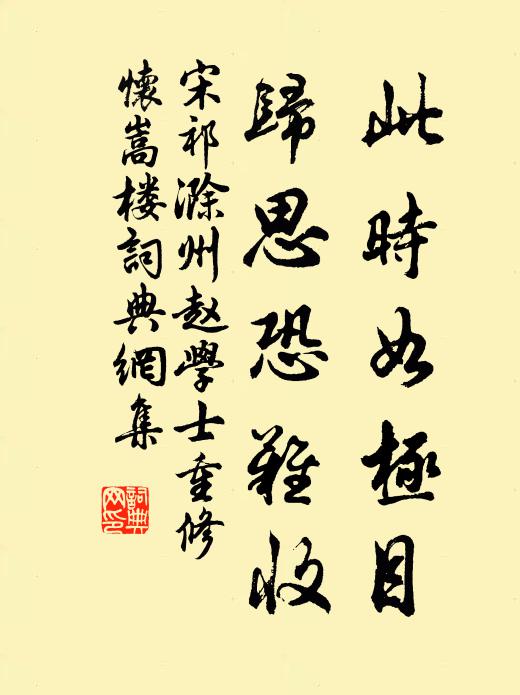 此時如極目
歸思恐難收
宋祁滁州赵學士重修
懷嵩楼詞典網集
詞典
网印